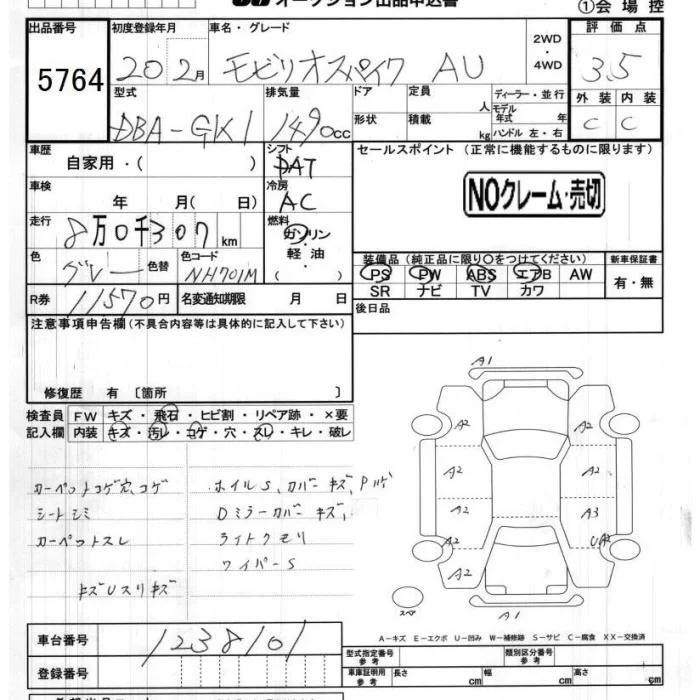 オークション出品申込書
①会場控
出品番号
5764
初度登録年月
20 2月
車名・グレード
モビリオスパイク AU
2WD
・
4WD
評価点
3.5
型式
DBA-GK1
排気量
1490cc
ドア
形状
定員
人
積載
kg
ディーラー・並行
モデル
年式 年
ハンドル 左・右
外装
C
内装
C
車歴
自家用・( )
シフト
DAT
セールスポイント (正常に機能するものに限ります)
NOクレーム・売切
車検
年 月( 日)
冷房
AC
走行
8万0千307km
燃料
ガソリン
・
軽油
( )
色
グレー
色替
色コード
NH701M
装備品(純正品に限り○をつけてください)
PS PW ABS エアB AW
SR ナビ TV カワ
新車保証書
有・無
R券
11570円
名変通知期限 月 日
後日品
注意事項申告欄(不具合内容等は具体的に記入して下さい)
修復歴 有 〔箇所 〕
検査員
記入欄
FW キズ・飛石・ヒビ割・リペア跡・×要
内装 キズ・汚レ・コゲ・穴・スレ・キレ・破レ
カーペットコゲ穴、コゲ
シートシミ
カーペットスレ
キズUスリキズ
ホイルS、カバーキズ、Pハゲ
Dミラーカバーキズ、
ライトクモリ
ワイパーS
A1
A2
A2
A2
A2
A2
A3
A2
UA2
A2
A2
A1
スペア
A-キズ E-エクボ U-凹み W-補修跡 S-サビ C-腐食 XX-交換済
車台番号
1238101
登録番号
型式指定番号
参考
類別区分番号
参考
車庫証明用
参考
長さ cm
幅 cm
高さ cm